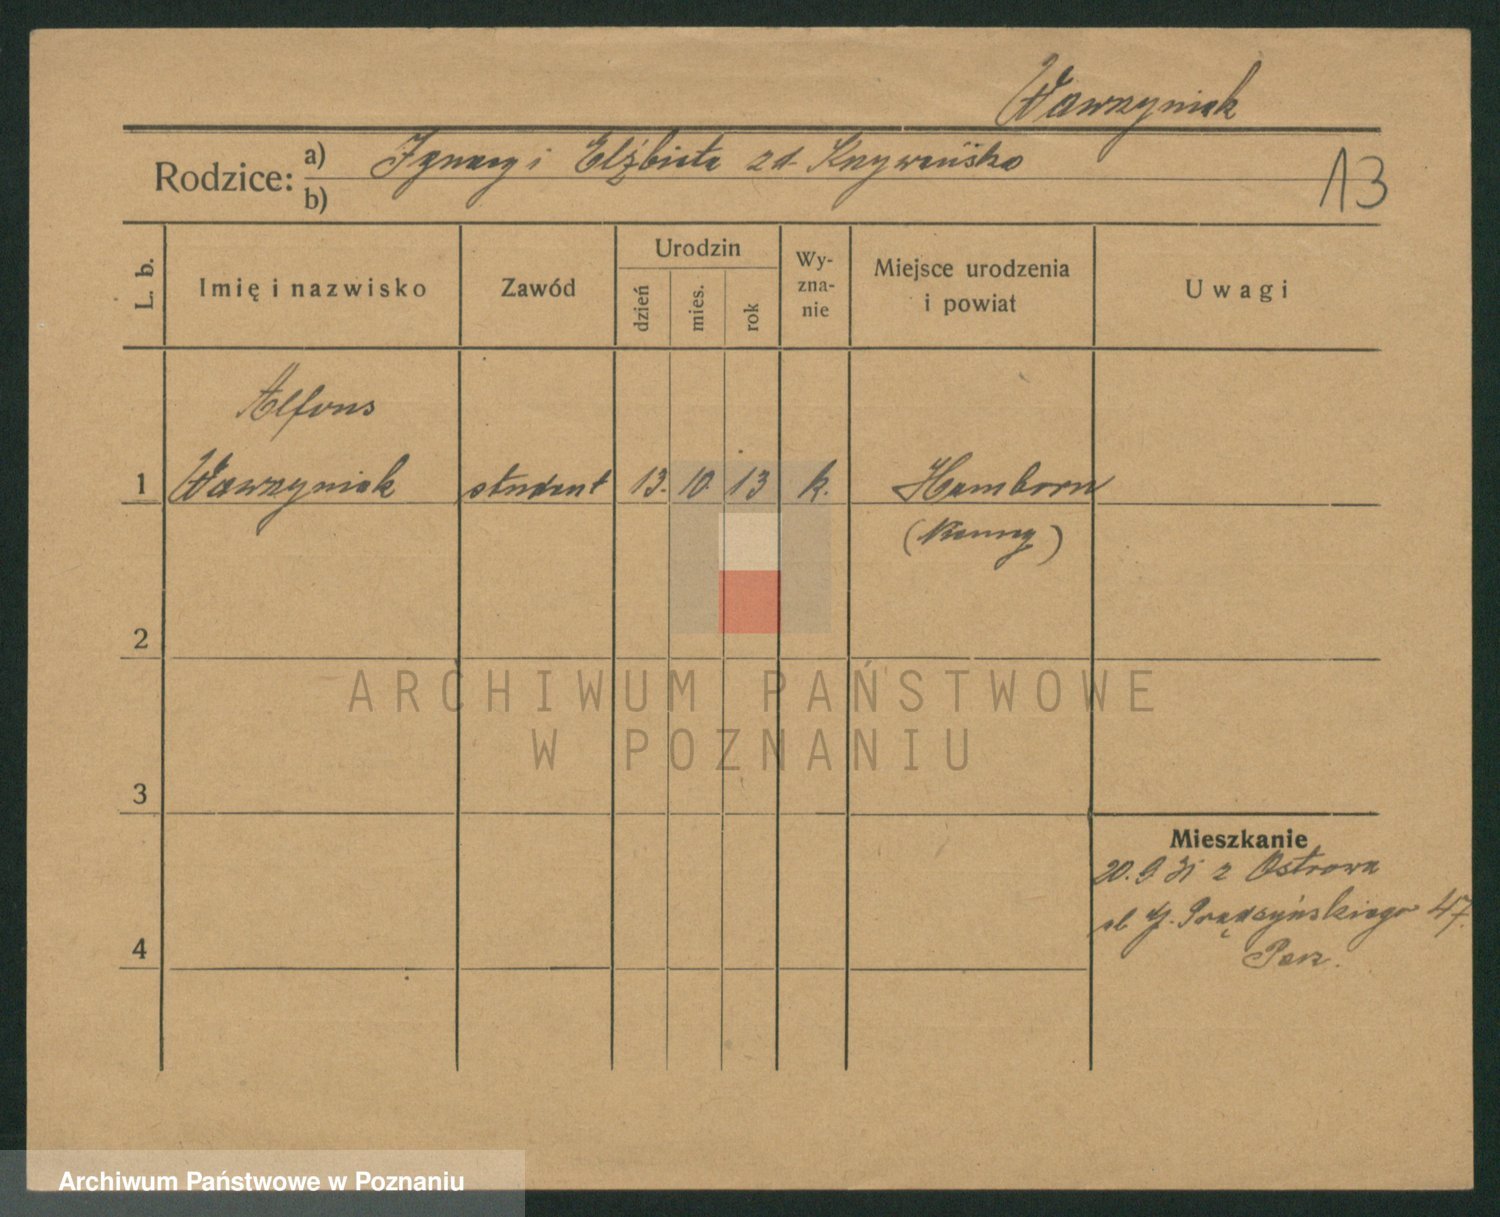 Wawrzyniak
Rodzice: a) Ignacy i Elżbieta zd. Krzywańska
b)
13
L. b.
Imię i nazwisko
Zawód
Urodzin
dzień
mies.
rok
Wy-
zna-
nie
Miejsce urodzenia
i powiat
Uwagi
Alfons
1 Wawrzyniak student 13. 10 13 k. Hamborn
(Niemcy)
2
3
4
Mieszkanie
20. 9. 31 z Ostrowa
ul. Prądzyńskiego 47.
Poz.
ARCHIWUM PAŃSTWOWE
W POZNANIU
Archiwum Państwowe w Poznaniu